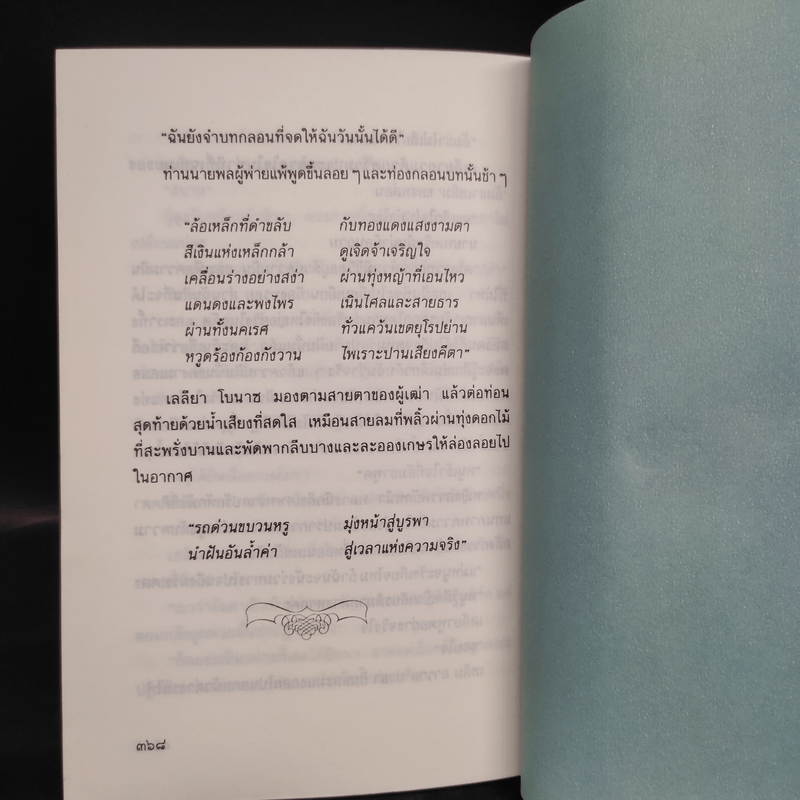 "ฉันยังจำบทกลอนที่จดให้ฉันวันนั้นได้ดี"
ท่านนายพลผู้พ่ายแพ้พูดขึ้นลอย ๆ และท่องกลอนบทนั้นช้า ๆ
"ล้อเหล็กที่ดำขลับ กับทองแดงแสงงามตา
สีเงินแห่งเหล็กกล้า ดูเจิดจ้าเจริญใจ
เคลื่อนร่างอย่างสง่า ผ่านทุ่งหญ้าที่เอนไหว
แดนดงและพงไพร เนินไศลและสายธาร
ผ่านทั้งนคเรศ ทั่วแคว้นเขตยุโรปย่าน
หวูดร้องก้องกังวาน ไพเราะปานเสียงคีตา"
เลลียา โบนาซ มองตามสายตาของผู้เฒ่า แล้วต่อท่อน
สุดท้ายด้วยน้ำเสียงที่สดใส เหมือนสายลมที่พลิ้วผ่านทุ่งดอกไม้
ที่สะพรั่งบานและพัดพากลีบบางและละอองเกษรให้ล่องลอยไป
ในอากาศ
"รถด่วนขบวนหรู มุ่งหน้าสู่บูรพา
นำฝันอันล้ำค่า สู่เวลาแห่งความจริง"
๓๖๘